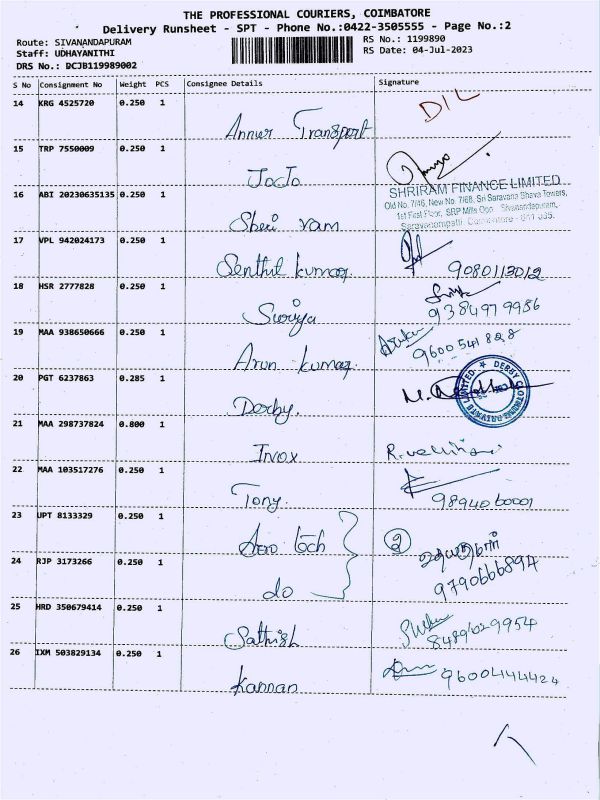 THE PROFESSIONAL COURIERS, COIMBATORE
Delivery Runsheet - SPT - Phone No.:0422-3505555 - Page No.:2
Route: SIVANANDAPURAM
RS No.: 1199890
Staff: UDHAYANITHI
RS Date: 04-Jul-2023
DRS No.: DCJB119989002
S No Consignment No Weight PCS Consignee Details Signature
14 KRG 4525720 0.250 1
Annur Transport
DIL
15 TRP 7550009 0.250 1
JocJo
16 ABI 20230635135 0.250 1
Sheri ram
SHRIRAM FINANCE LIMITED
Old No. 7/46, New No. 7/68, Sri Saravana Bhava Towers,
1st First Floor, SRP Mills Opp. Sivanandapuram,
Saravanampatti, Coimbatore - 641 035.
17 VPL 942024173 0.250 1
Senthil kumar
9080113012
18 HSR 2777828 0.250 1
Suriya
9384979956
19 MAA 938650666 0.250 1
Arun kumar
9600541828
20 PGT 6237863 0.285 1
Derby.
DERBY
PRIVATE LIMITED
21 MAA 298737824 0.800 1
Inox
22 MAA 103517276 0.250 1
Tony.
9894060001
23 UPT 8133329 0.250 1
Aero tech
2
24 RJP 3173266 0.250 1
do
25 HRD 350679414 0.250 1
Sathish
8489629954
26 IXM 503829134 0.250 1
Kannan
9600444424